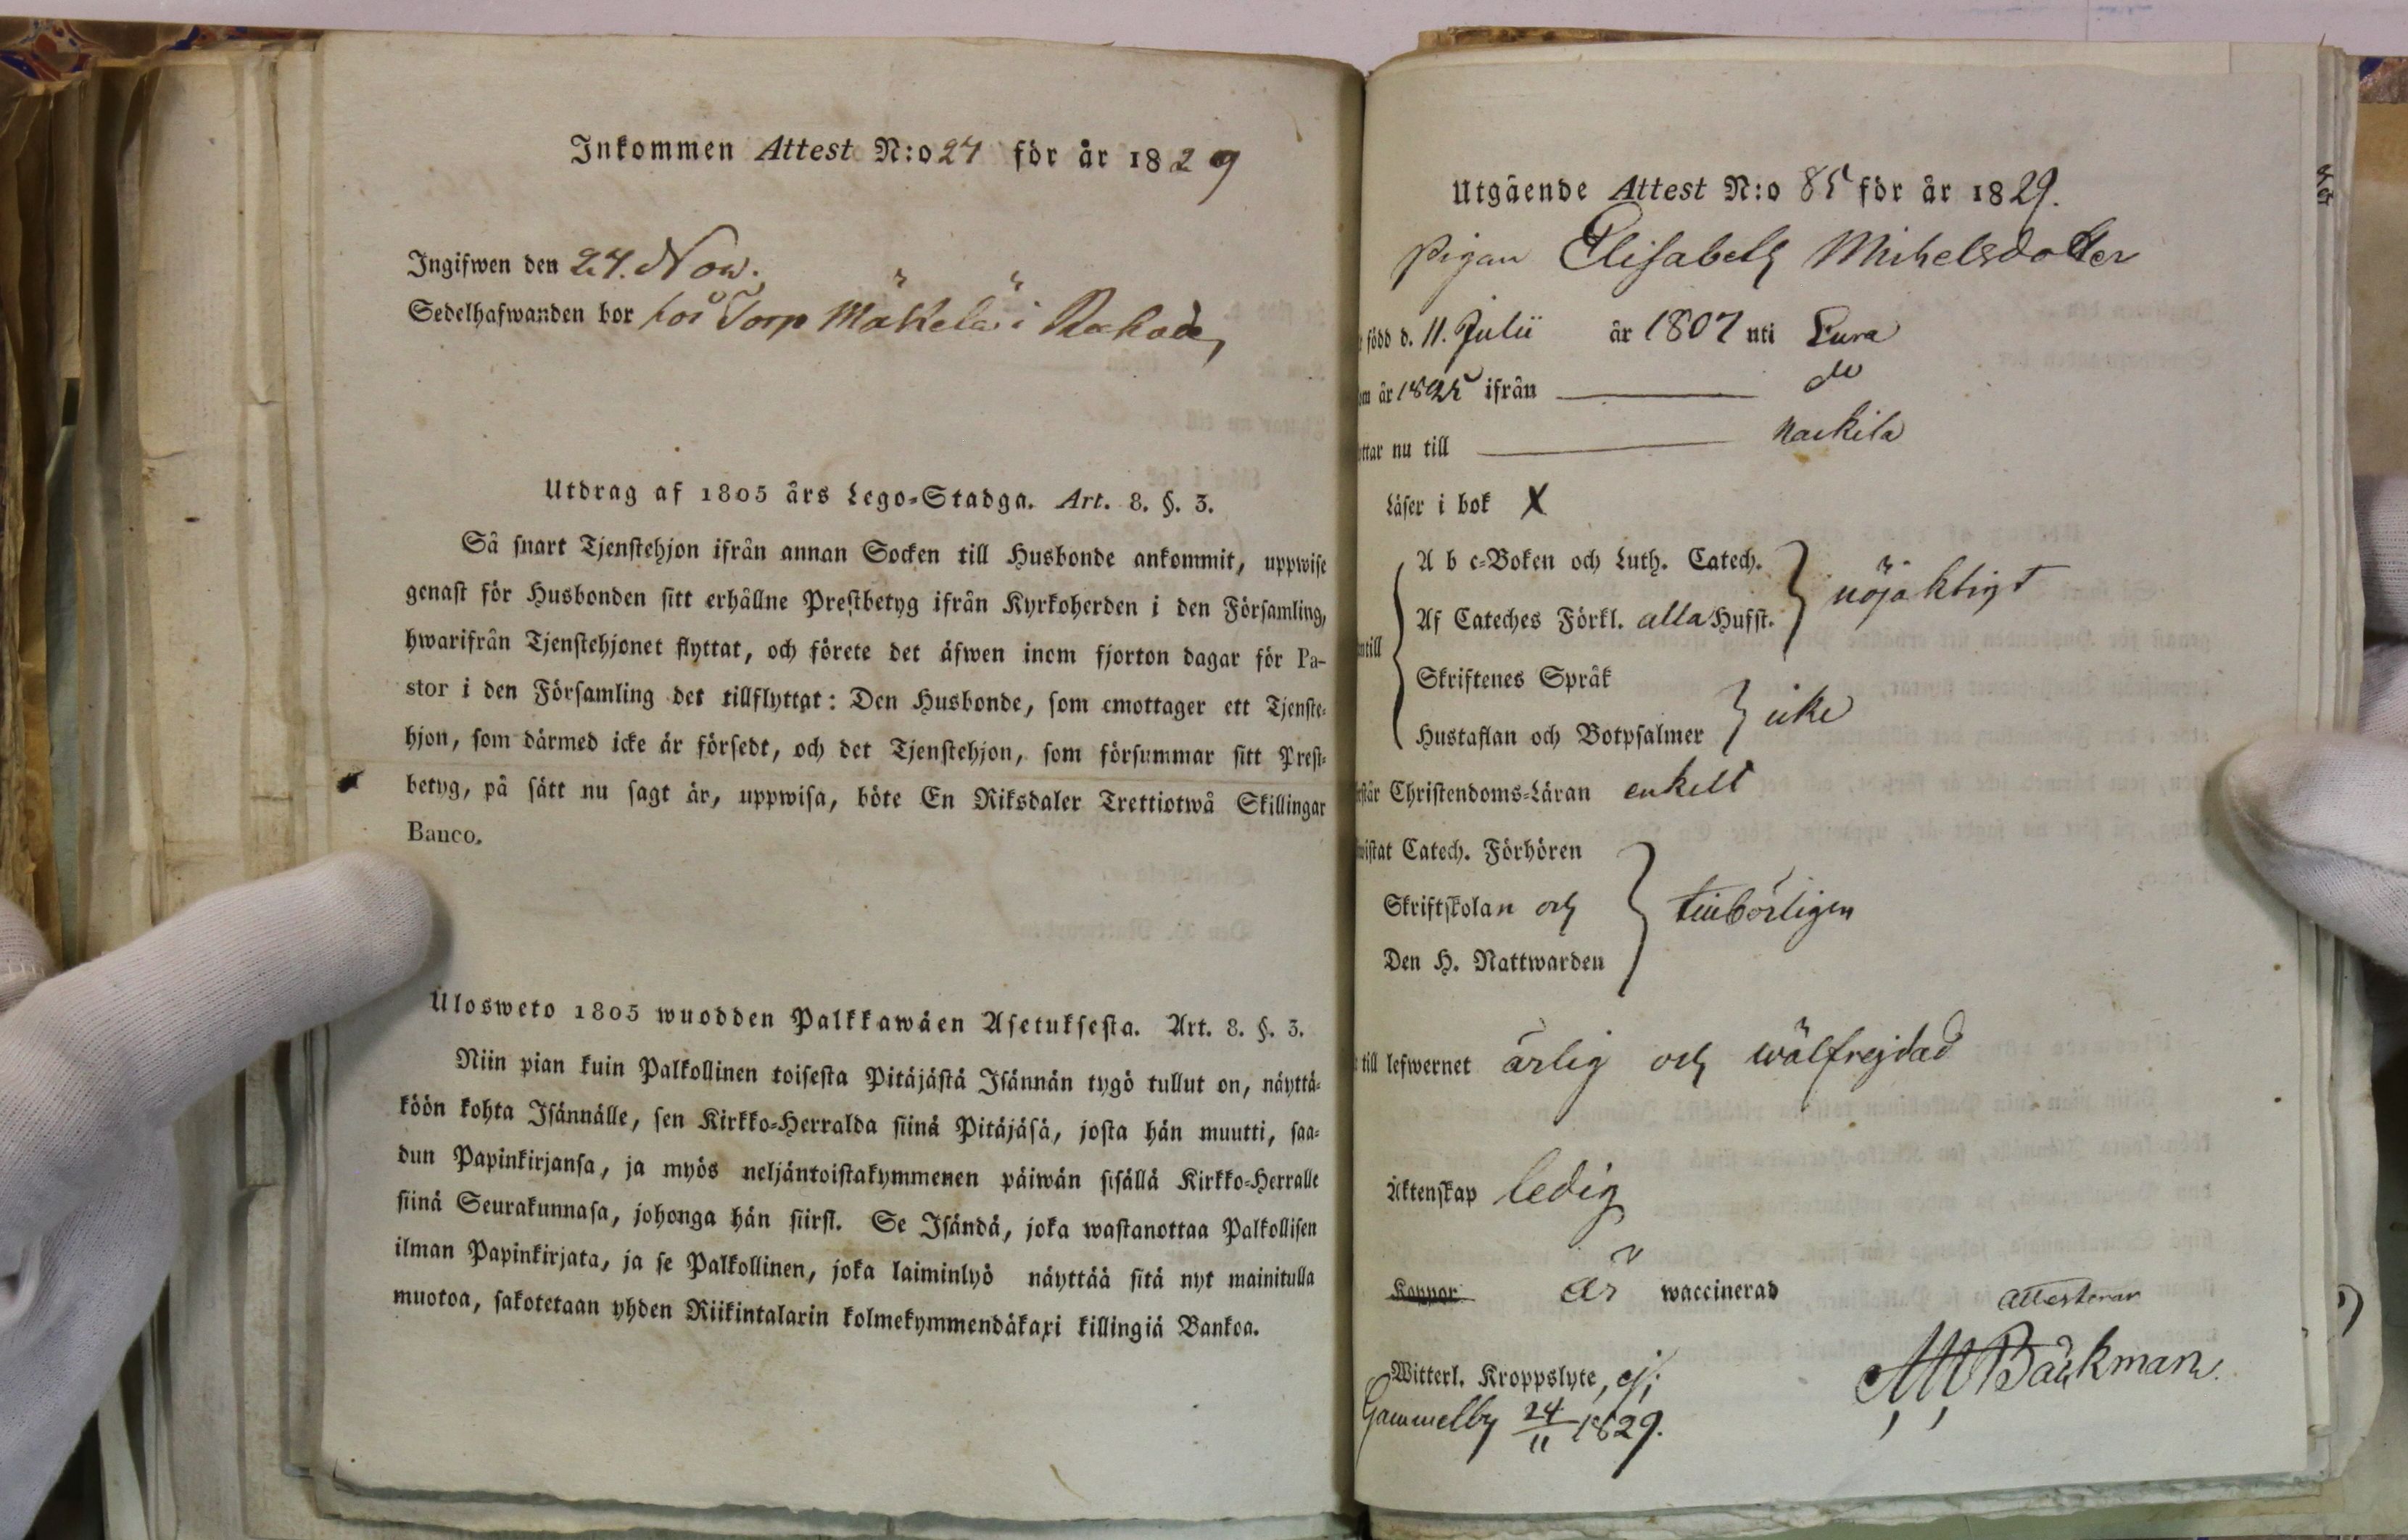 Inkommen Attest N:o 27 för år 1829
Ingifwen den 27. Nov.
Sedelhafwanden bor hos Torp Mäkelä i
Utdrag af 1805 års Lego-Stadga. Art. 8. §. 3.
Så snart Tjenstehjon ifrån annan Socken till Husbonde ankommit, uppwise
genast för Husbonden sitt erhållne Prestbetyg ifrån Kyrkoherden i den Församling,
hwarifrån Tjenstehjonet flyttat, och förete det äfwen inom fjorton dagar för Pa-
stor i den Församling det tillflyttat: Den Husbonde, som emottager ett Tjenste-
hjon, som därmed icke är försedt, och det Tjenstehjon, som försummar sitt Prest-
betyg, på sätt nu sagt är, uppwisa, böte En Riksdaler Trettiotwå Skillingar
Banco.
Ulosweto 1805 wuodden Palkkawäen Asetuksesta. Art. 8. §. 3.
Niin pian kuin Palkollinen toisesta Pitäjästä Isännän tygö tullut on, näyttä-
köön kohta Isännälle, sen Kirkko-Herralda siinä Pitäjäsä, josta hän muutti, saa-
dun Papinkirjansa, ja myös neljäntoistakymmenen päiwän sisällä Kirkko-Herralle
siinä Seurakunnasa, johonga hän siirsi. Se Isändä, joka wastanottaa Palkollisen
ilman Papinkirjata, ja se Palkollinen, joka laiminlyö näyttää sitä nyt mainitulla
muotoa, sakotetaan yhden Riikintalarin kolmekymmendäkaxi killingiä Bankoa.
Utgående Attest N:o 85 för år 1829.
Pigan Elisabeth Michelsdotter
född d. 11. Julii år 1807 uti Eura
om år 1825 ifrån do
ttar nu till Nackila
Läser i bok X
A b c-Boken och Luth. Catech.
Af Cateches Förkl. alla Husst. nöjaktigt
ntill
Skriftenes Språk
Hustaflan och Botpsalmer icke
rstår Christendoms-Läran enkelt
wistat Catech. Förhören
Skriftskolan och tillbörligen
Den H. Nattwarden
till lefwernet ärlig och wälfrejdad
Äktenskap ledig
Koppor är waccinerad
attesterar
Witterl. Kroppslyte, ej;
Bäckman.
Gammelby 24/11 1829.